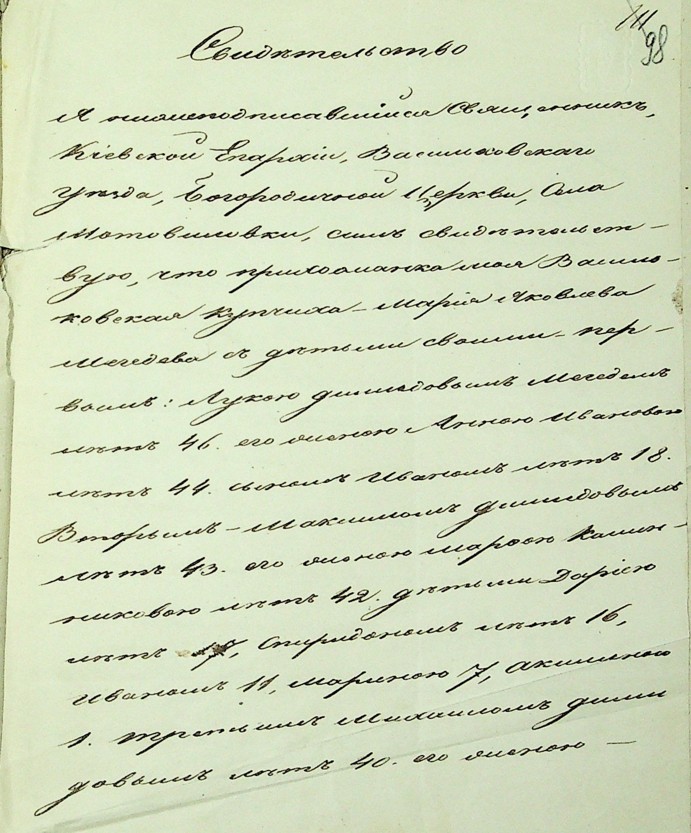 111
98
Свидѣтельство
Я нижеподписавшійся Священникъ,
Кіевской Епархіи, Васильковскаго
уѣзда, Богородичной Церкви, Села
Мотовиловки, симъ свидѣтельст-
вую, что прихожанка моя Василь-
ковская купчиха - Марія Яковлева
Мегедева съ дѣтьми своими - пер-
вымъ: Лукою Демидовымъ Мегедемъ
лѣтъ 46. его женою Анною Ивановою
лѣтъ 44. сыномъ Иваномъ лѣтъ 18.
Вторымъ - Максимомъ Демидовымъ
лѣтъ 43. его женою Марѳою Калин-
никовою лѣтъ 42. дѣтьми Даріею
лѣтъ 17, Спиридономъ лѣтъ 16,
Иваномъ 11, Мариною 7, Акилиною
1. третьимъ Михаиломъ Деми
довымъ лѣтъ 40. его женою —